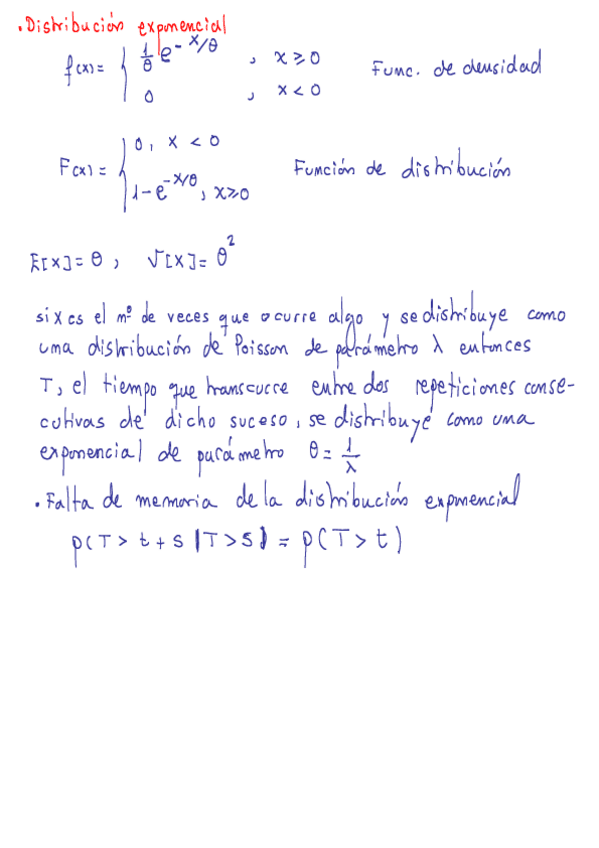 . Distribución exponencial
f(x) = { 1/θ e^(-x/θ) , x ≥ 0
0 , x < 0
Func. de densidad
F(x) = { 0, x < 0
1 - e^(-x/θ), x ≥ 0
Función de distribución
E[X] = θ , V[X] = θ²
si x es el nº de veces que ocurre algo y se distribuye como
una distribución de Poisson de parámetro λ entonces
T, el tiempo que transcurre entre dos repeticiones conse-
cutivas de dicho suceso, se distribuye como una
exponencial de parámetro θ = 1/λ
. Falta de memoria de la distribución exponencial
p(T > t + s | T > s) = p(T > t)